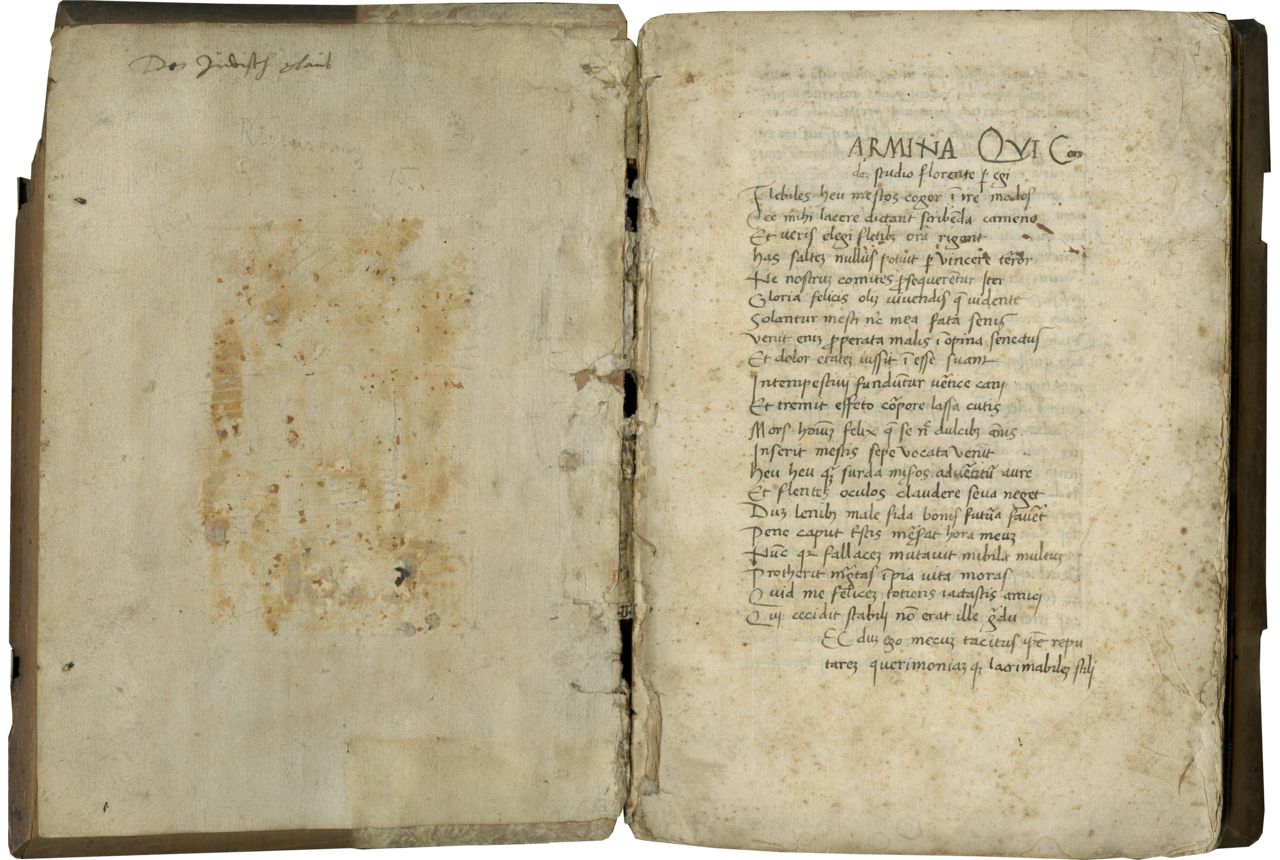 Der Jüdisch glaub
ARMINA QVI Con
daz studio florente p egi
Flebiles heu mestos cogor ī ire modos
Cce mihi lacere dictant scribēda camene
Et veris elegi fletibz ora rigant
has saltez nullus potuit p vincere terror
Ne nostruz comites psequerentur iter
Gloria felicis oliz viuendis q̄ vidente
Solantur mesti nc̄ mea fata senis
venit eniz pperata malis ī opina senectus
Et dolor etatez iussit ī esse suam
Intempestiui fundūtur vētice cani
Et tremit effeto cōpore lassa cutis
Mors hoīuz felix q̄ se nc̄ dulcibz annis
Inserit mestis sepe vocata venit
heu heu qz surda misos advētitū aure
Et flentes oculos claudere seua neget
Duz lenibz male fida bonis futūa fauet
Pene caput tristis mēsat hora meuz
Nūc qz fallacez mutauit nibila multuz
Protherit īgtas īpia vita moras
Quid me felicez totiens iactastis amici
Qui cecidit stabili nō erat ille gdu
EC duz ego mecuz tacitus ipē repu
tarez querimoniaz qz lacrimabilez stili